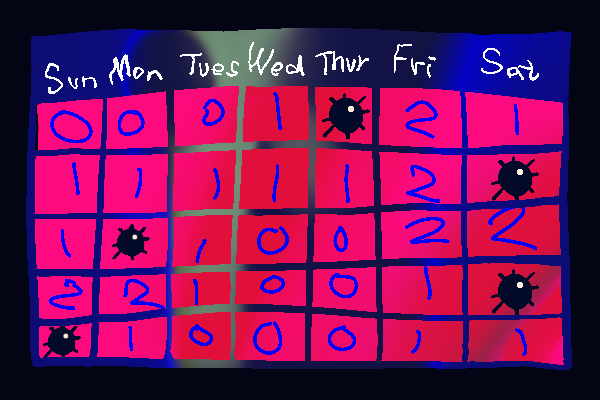 Sun Mon Tues Wed Thur Fri Sat
0 0 0 1 2 1
1 1 1 1 1 2
1 1 0 0 2 2
2 2 1 0 0 1
1 0 0 0 1 1